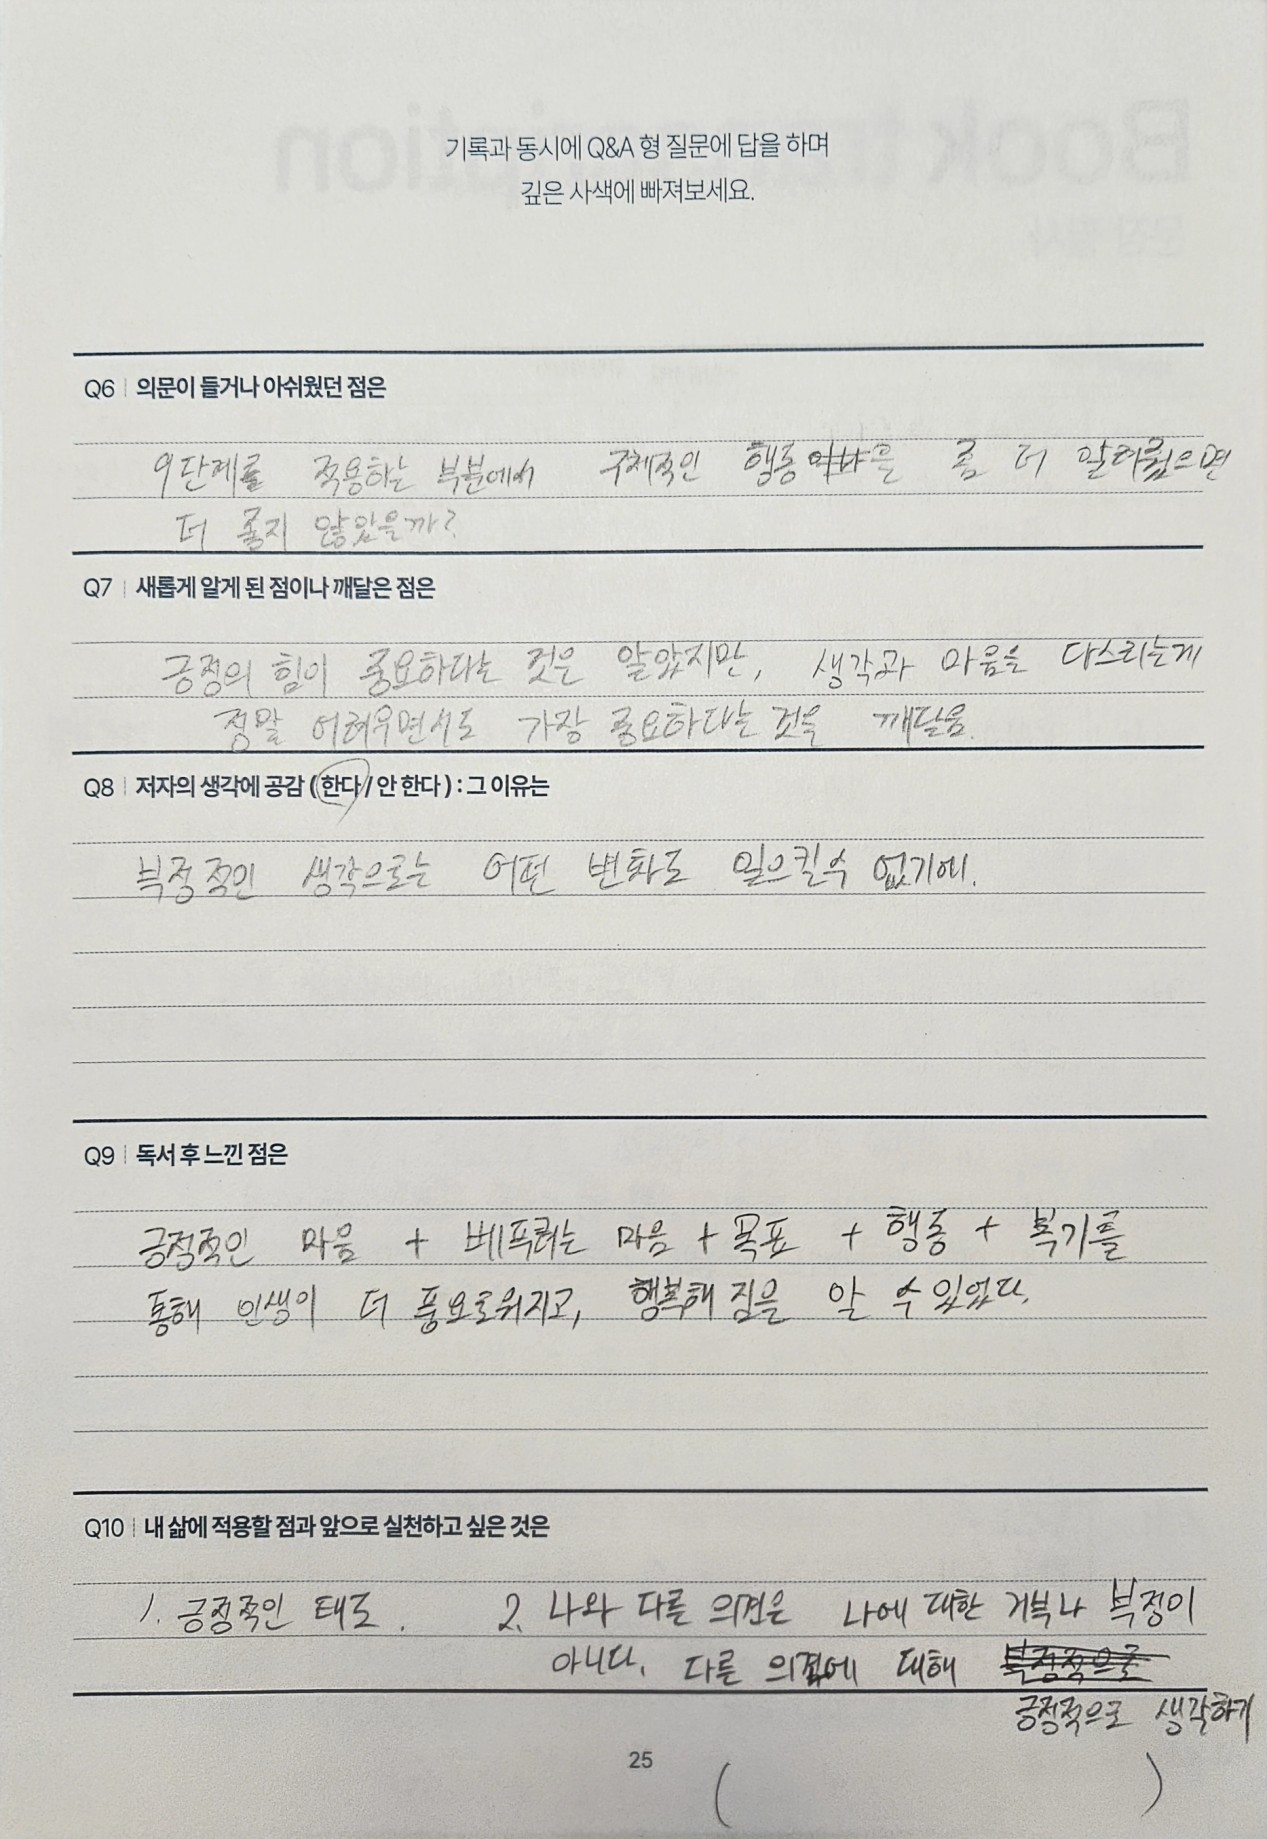 기록과 동시에 Q&A 형 질문에 답을 하며
깊은 사색에 빠져보세요.
Q6 | 의문이 들거나 아쉬웠던 점은
9단계를 적용하는 부분에서 구체적인 행동 을 좀 더 알려줬으면
더 좋지 않았을까?
Q7 | 새롭게 알게 된 점이나 깨달은 점은
긍정의 힘이 중요하다는 것은 알았지만, 생각과 마음을 다스리는게
정말 어려우면서도 가장 중요하다는 것을 깨달음.
Q8 | 저자의 생각에 공감 ( 한다 / 안 한다 ) : 그 이유는
부정적인 생각으로는 어떤 변화도 일으킬수 없기에.
Q9 | 독서 후 느낀 점은
긍정적인 마음 + 베푸려는 마음 + 목표 + 행동 + 복기를
통해 인생이 더 풍요로워지고, 행복해 짐을 알 수 있었다.
Q10 | 내 삶에 적용할 점과 앞으로 실천하고 싶은 것은
1. 긍정적인 태도. 2. 나와 다른 의견은 나에 대한 거부나 부정이
아니다. 다른 의견에 대해 부정적으로
긍정적으로 생각하기
25
( )